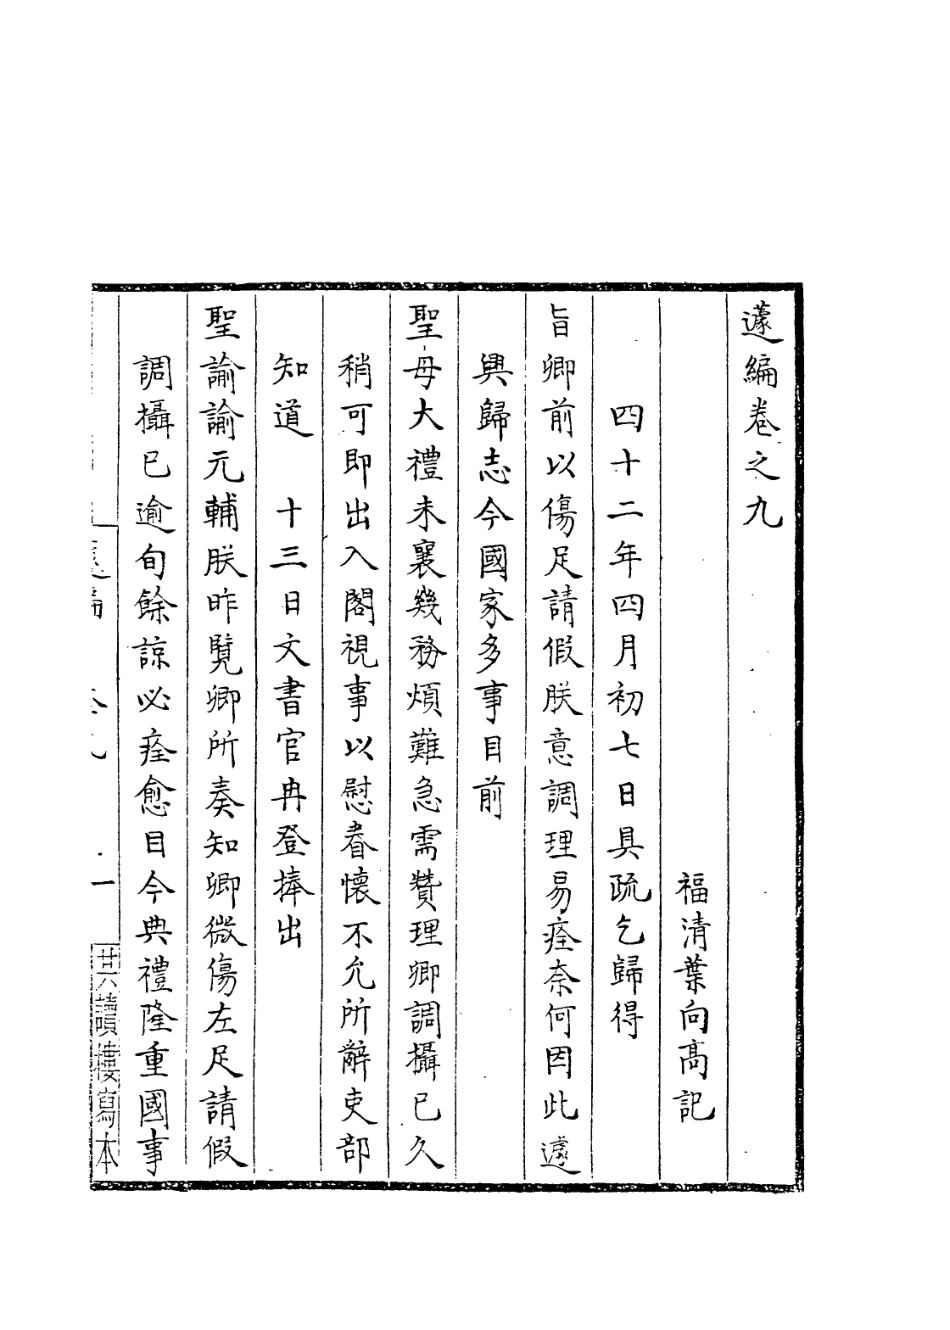 蘧編卷之九
福清葉向高記
四十二年四月初七日具疏乞歸得
旨卿前以傷足請假朕意調理易痊奈何因此遽
興歸志今國家多事目前
聖母大禮未襄幾務煩難急需贊理卿調攝已久
稍可即出入閣視事以慰眷懷不允所辭吏部
知道　十三日文書官冉登捧出
聖諭諭元輔朕昨覽卿所奏知卿微傷左足請假
調攝已逾旬餘諒必痊愈目今典禮隆重國事
蘧編　卷九　一
廿六讀樓寫本